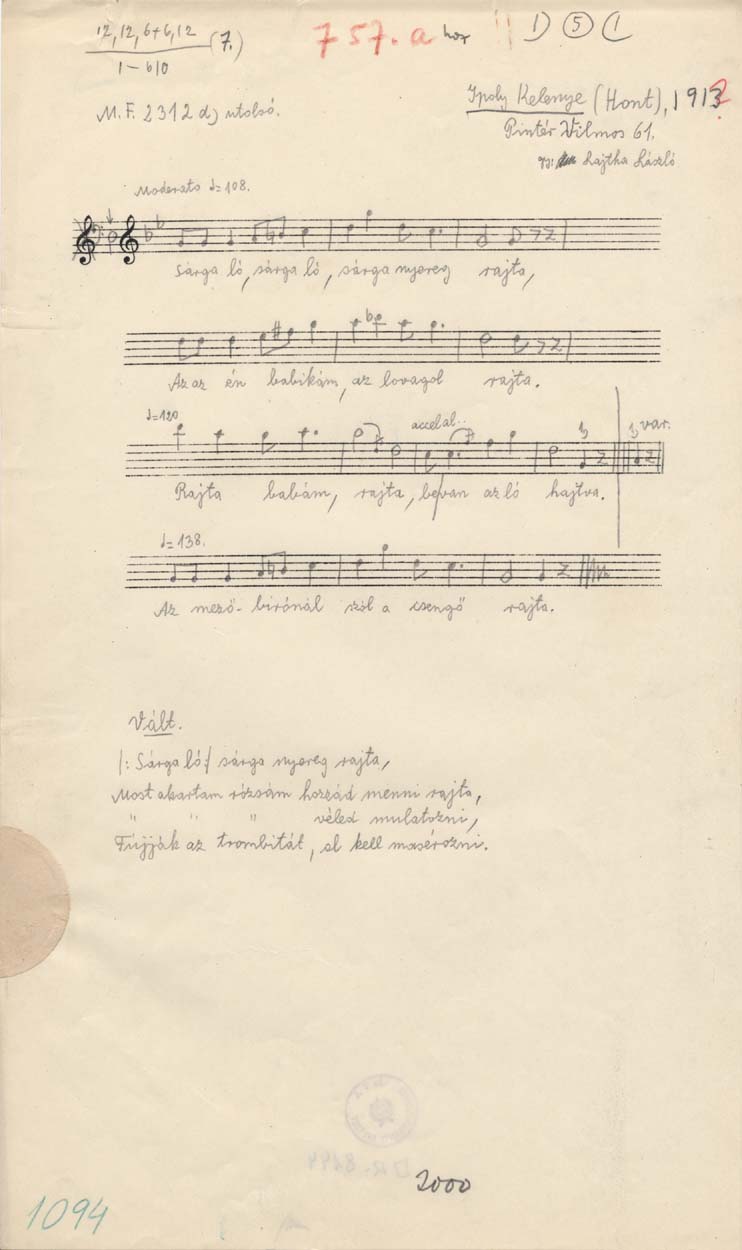 12, 12, 6+6, 12 (7.)
1 — b10
757. a
1) 5 (1
M. F. 2312 d) utolsó.
Ipoly Kelenye (Hont), 1913?
Pintér Vilmos 61.
Lajtha László
Moderato ♩=108.
Sárga ló, sárga ló, sárga nyereg rajta,
Az az én babikám, az lovagol rajta.
♩=120
accel al..
var.
Rajta babám, rajta, be van az ló hajtva.
♩=138.
Az mező-birónál szól a csengő rajta.
Vált.
/: Sárga ló :/ sárga nyereg rajta,
Most akartam rózsám hozzád menni rajta,
" " " véled mulatozni,
Fújják az trombitát, el kell masérozni.
2000
1094